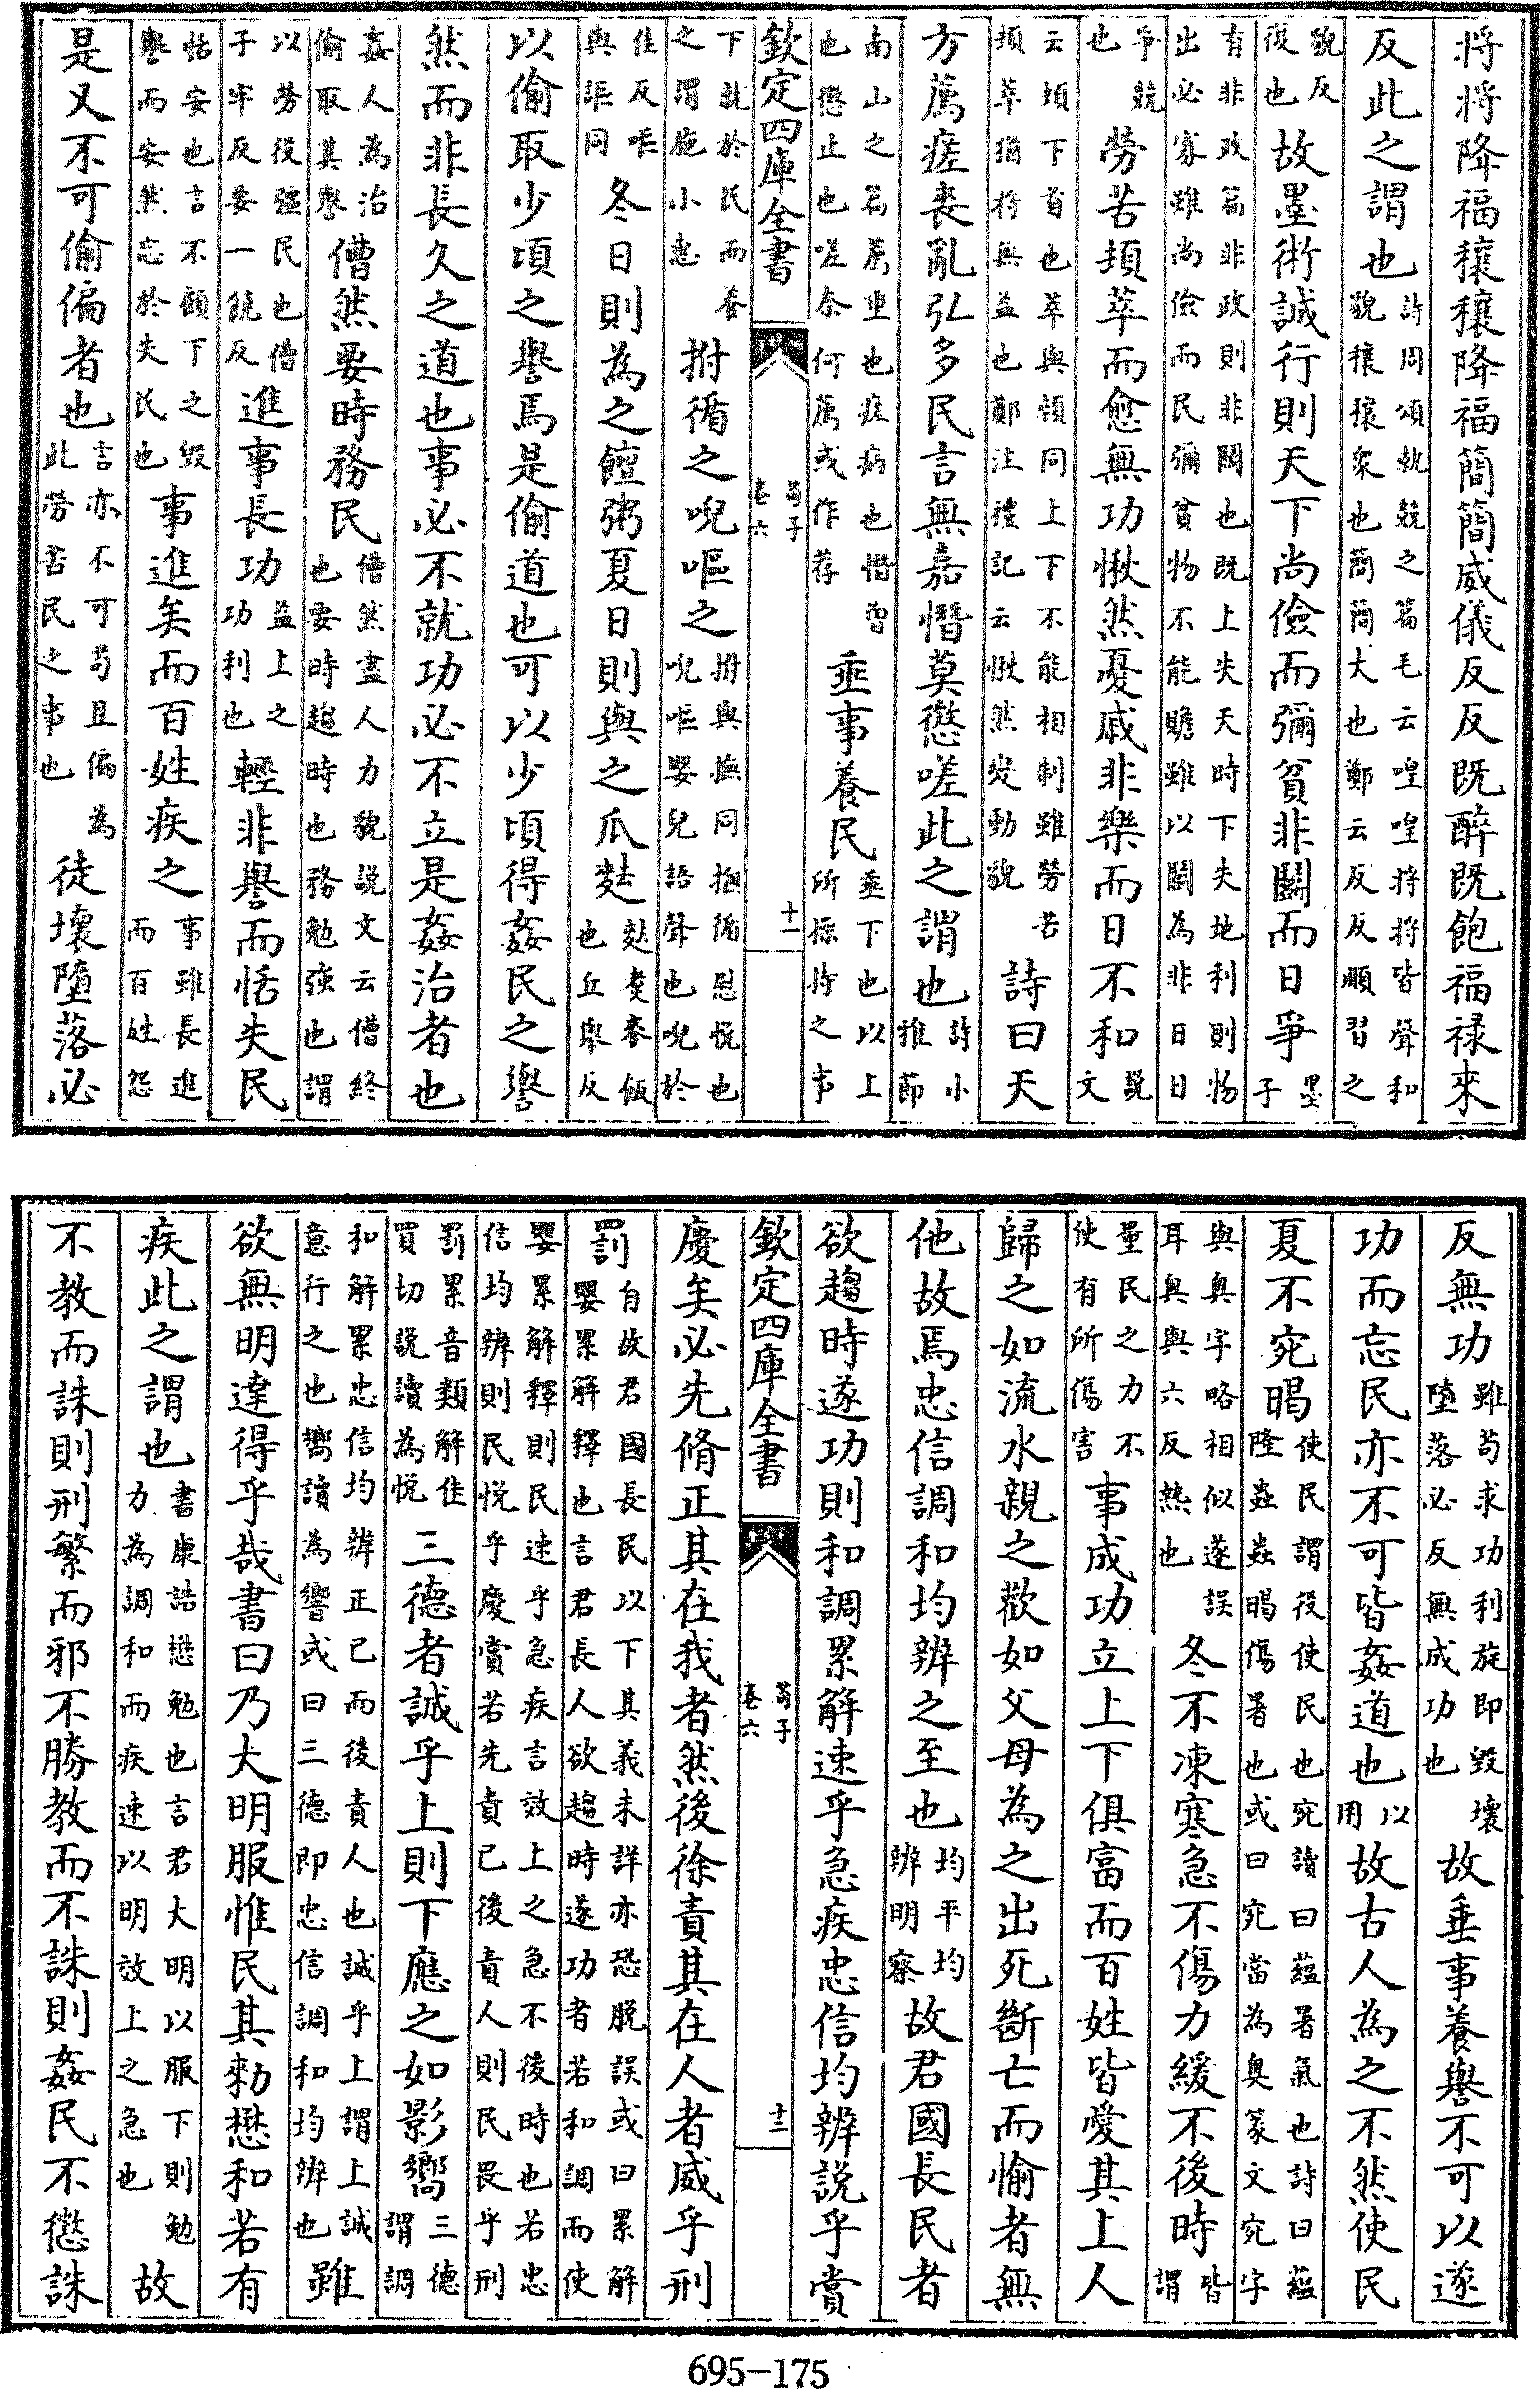 將將降福穰穰降福簡簡威儀反反既醉既飽福禄來
反此之謂也詩周頌執競之篇毛云喤喤將將皆聲和貌穰穰衆也簡簡大也鄭云反反順習之
貌反後也故墨術誠行則天下尚儉而彌貧非鬭而日爭墨子
有非攻篇非政則非鬭也既上失天時下失地利則物出必寡雖尚儉而民彌貧物不能贍雖以鬭為非日日
爭競也勞苦頓萃而愈無功愀然憂戚非樂而日不和説文
云頓下首也萃與顇同上下不能相制雖勞苦頓萃猶將無益也鄭注禮記云愀然變動貌詩曰天
方薦瘥喪亂弘多民言無嘉憯莫懲嗟此之謂也詩小雅節
南山之篇薦重也瘥病也憯曾也懲止也嗟奈何薦或作荐垂事養民垂下也以上所操持之事
欽定四庫全書 荀子卷六 十一
下就於民而養之謂施小惠拊循之唲嘔之拊與撫同撫循慰悅也唲嘔嬰兒語聲也唲於
佳反嘔與謳同冬日則為之饘粥夏日則與之瓜麩麩煑麥飯也丘舉反
以偷取少頃之譽焉是偷道也可以少頃得姦民之譽
然而非長久之道也事必不就功必不立是姦治者也
姦人為治偷取其譽傮然要時務民傮然盡人力貌説文云傮終也要時趨時也務勉強也謂
以勞役強民也傮子牢反要一饒反進事長功益上之功利也輕非譽而恬失民
恬安也言不顧下之毀譽而安然忘於失民也事進矣而百姓疾之事雖長進而百姓怨
是又不可偷偏者也言亦不可苟且偏為此勞苦民之事也徒壞墮落必
反無功雖苟求功利旋即毀壞墮落必反無成功也故垂事養譽不可以遂
功而忘民亦不可皆姦道也以用故古人為之不然使民
夏不宛暍使民謂役使民也宛讀曰藴暑氣也詩曰藴隆蟲蟲暍傷暑也或曰宛當為奥篆文宛字
與奥字略相似遂誤耳奥與六反熱也冬不凍寒急不傷力緩不後時皆謂
量民之力不使有所傷害事成功立上下俱富而百姓皆愛其上人
歸之如流水親之歡如父母為之出死斷亡而愉者無
他故焉忠信調和均辨之至也均平均辨明察故君國長民者
欲趨時遂功則和調累解速乎急疾忠信均辨説乎賞
欽定四庫全書 荀子卷六 十二
慶矣必先脩正其在我者然後徐責其在人者威乎刑
罰自故君國長民以下其義未詳亦恐脱誤或曰累解嬰累解釋也言君長人欲趨時遂功者若和調而使
嬰累解釋則民速乎急疾言效上之急不後時也若忠信均辨則民悦乎慶賞若先責己後責人則民畏乎刑
罰累音類解佳買切説讀為悦三德者誠乎上則下應之如影嚮三德謂調
和解累忠信均辨正己而後責人也誠乎上謂上誠意行之也嚮讀為響或曰三德即忠信調和均辨也雖
欲無明達得乎哉書曰乃大明服惟民其勑懋和若有
疾此之謂也書康誥懋勉也言君大明以服下則勉力為調和而疾速以明效上之急也故
不教而誅則刑繁而邪不勝教而不誅則姦民不懲誅
695-175